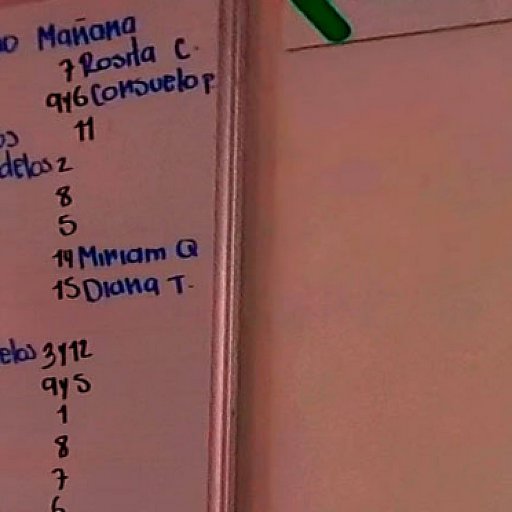 o Mañana
7 Rosita C.
9y6 Consuelo P
os 11
delos 2
8
5
14 Miriam Q
15 Diana T.
elos 3y12
9y5
1
8
7
6